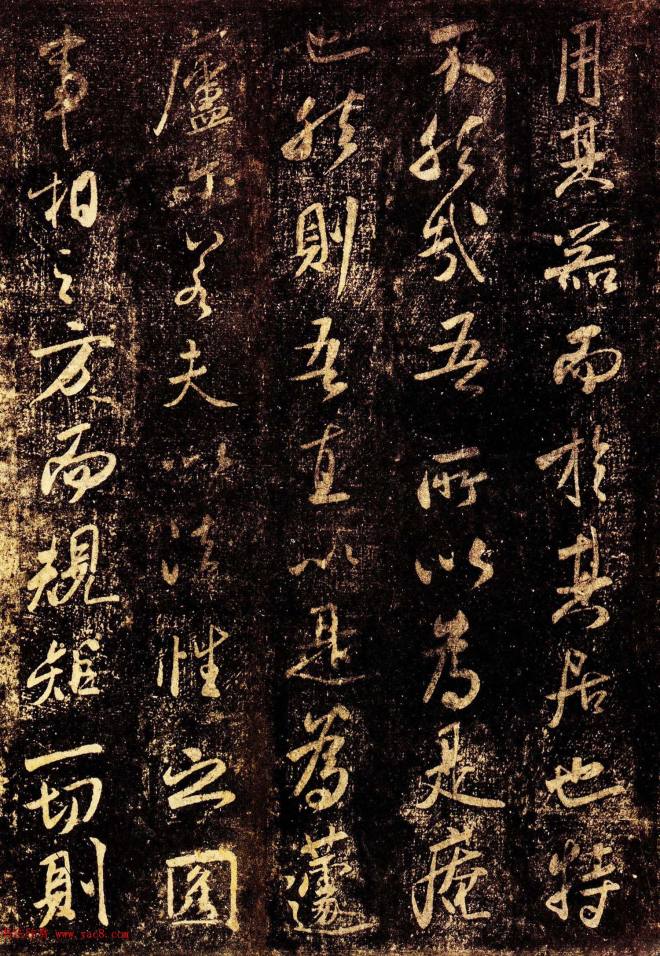 用其器而於其居也特
不然哉吾所以為是庵
也然則吾直以是為蘧
廬尓若夫以法性之圓
事相之方而規矩一切則
www.yac8.com